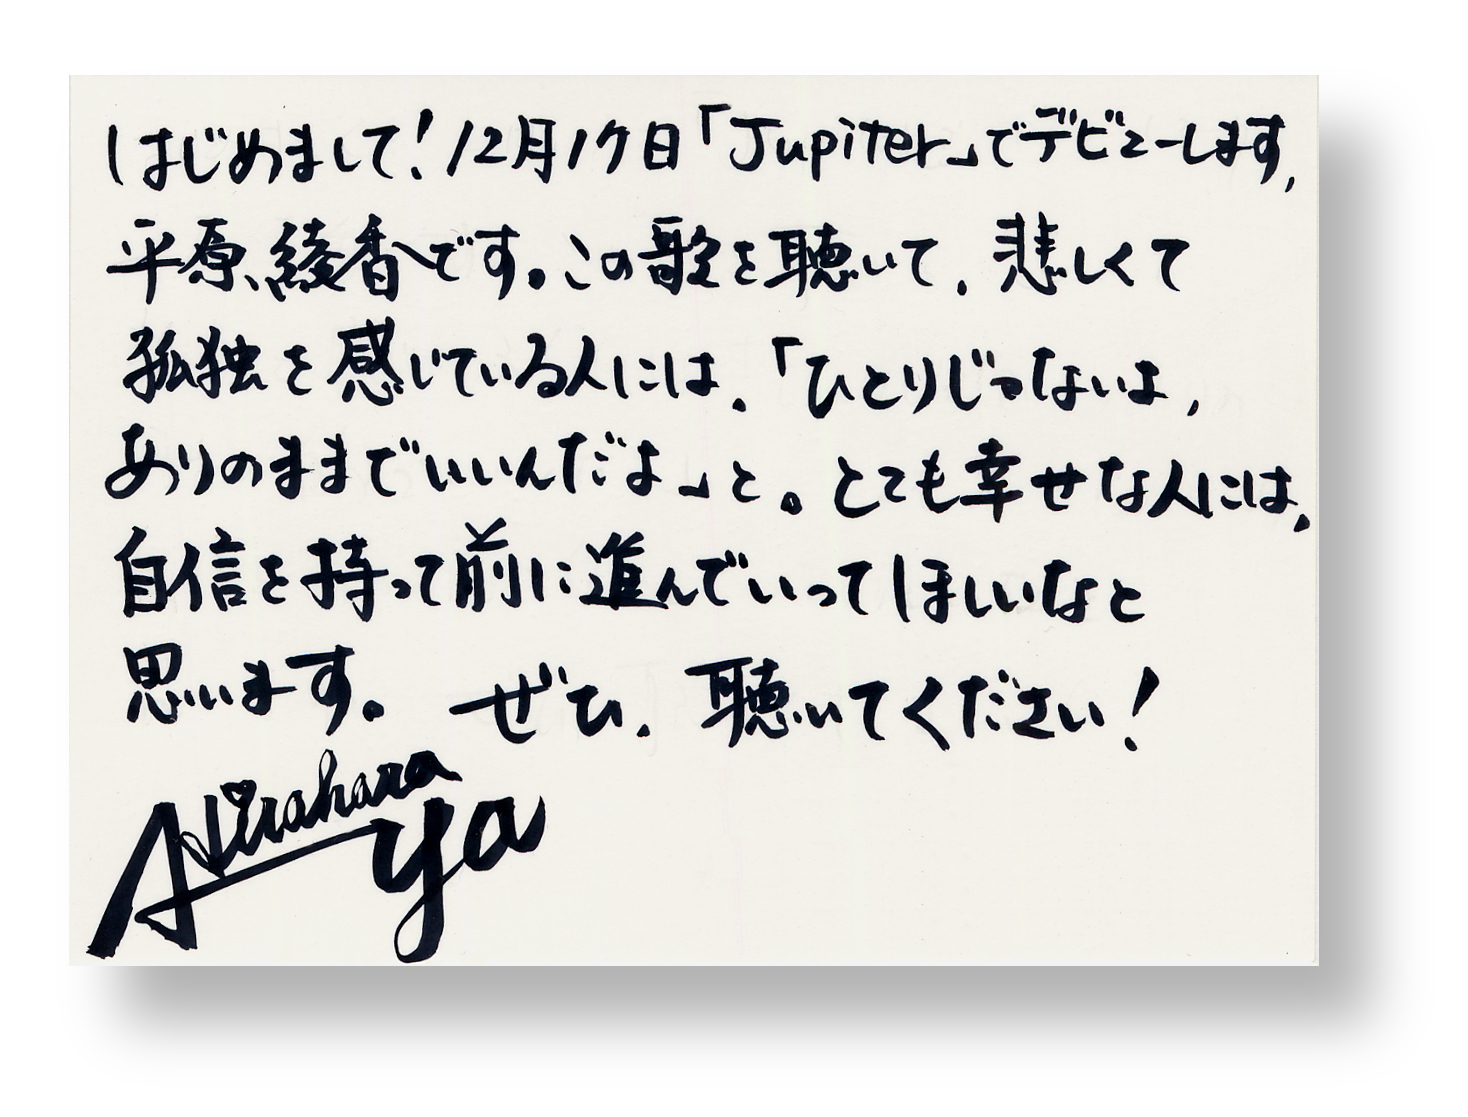 はじめまして!12月17日「Jupiter」でデビューします、
平原綾香です。この歌を聴いて、悲しくて
孤独を感じている人には、「ひとりじゃないよ、
ありのままでいいんだよ」と。とても幸せな人には、
自信を持って前に進んでいってほしいなと
思います。ぜひ、聴いてください!
Hirahara
Aya